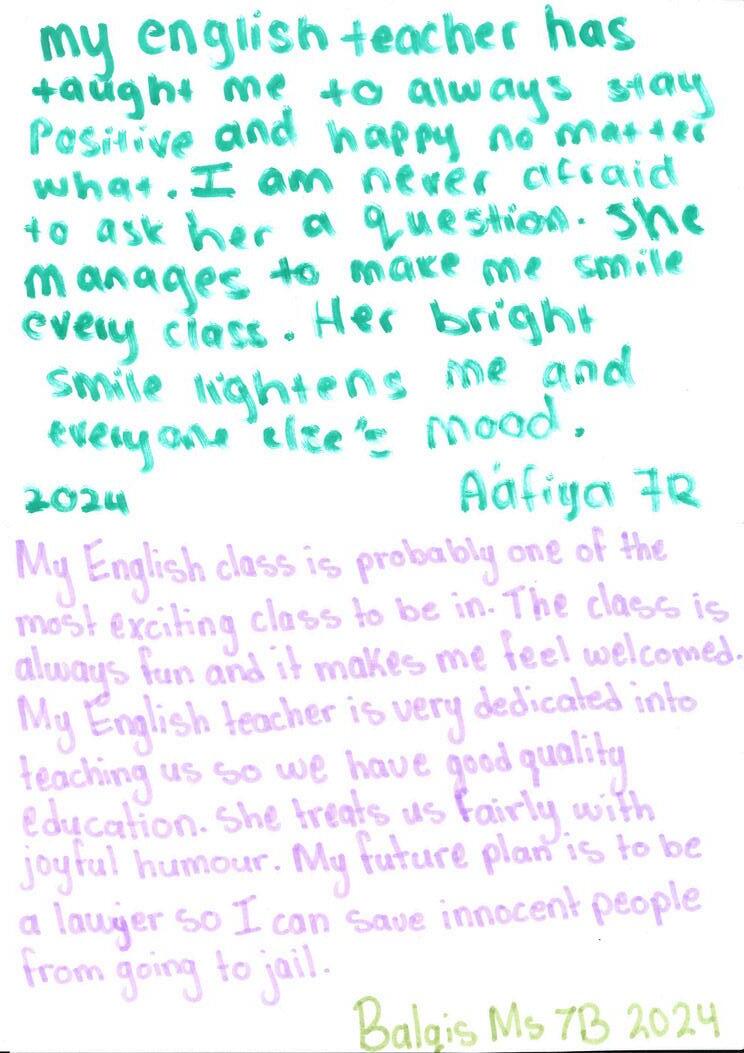 my english teacher has
taught me to always stay
Positive and happy no matter
what. I am never afraid
to ask her a question. She
manages to make me smile
every class. Her bright
smile lightens me and
everyone else's mood.
2024 Aafiya 7R
My English class is probably one of the
most exciting class to be in. The class is
always fun and it makes me feel welcomed.
My English teacher is very dedicated into
teaching us so we have good quality
education. She treats us fairly with
joyful humour. My future plan is to be
a lawyer so I can save innocent people
from going to jail.
Balqis Ms 7B 2024